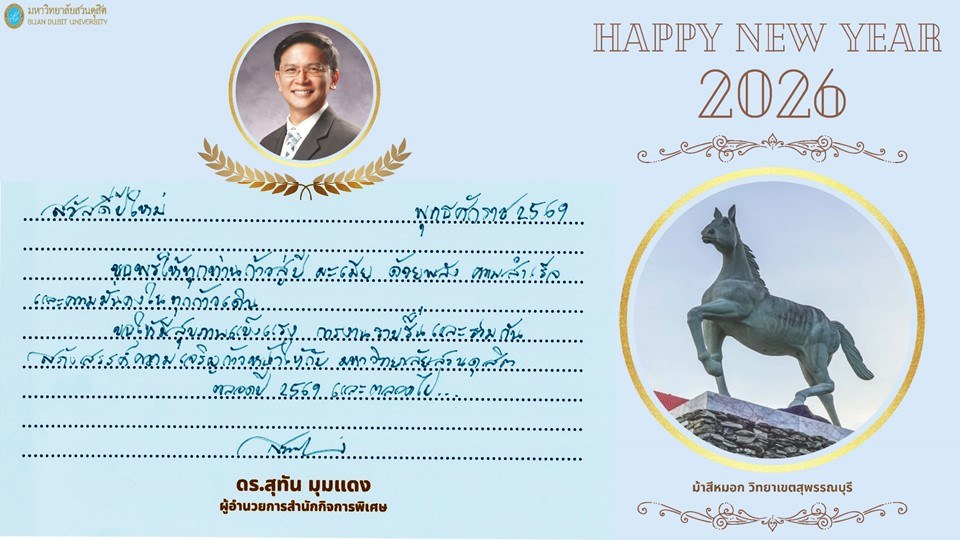 มหาวิทยาลัยสวนดุสิต
SUAN DUSIT UNIVERSITY
HAPPY NEW YEAR
2026
สวัสดีปีใหม่ พุทธศักราช 2569
ขอพรให้ทุกท่านก้าวสู่ปี มะเมีย ด้วยพลัง ความสำเร็จ
และความมั่นคงใน ทุกก้าวเดิน
ขอให้มีสุขภาพแข็งแรง การงานราบรื่น และร่วมกัน
สร้างสรรค์ความเจริญก้าวหน้าให้กับ มหาวิทยาลัยสวนดุสิต
ตลอดปี 2569 และตลอดไป...
ดร.สุทัน มุมแดง
ผู้อำนวยการสำนักกิจการพิเศษ
ม้าสีหมอก วิทยาเขตสุพรรณบุรี